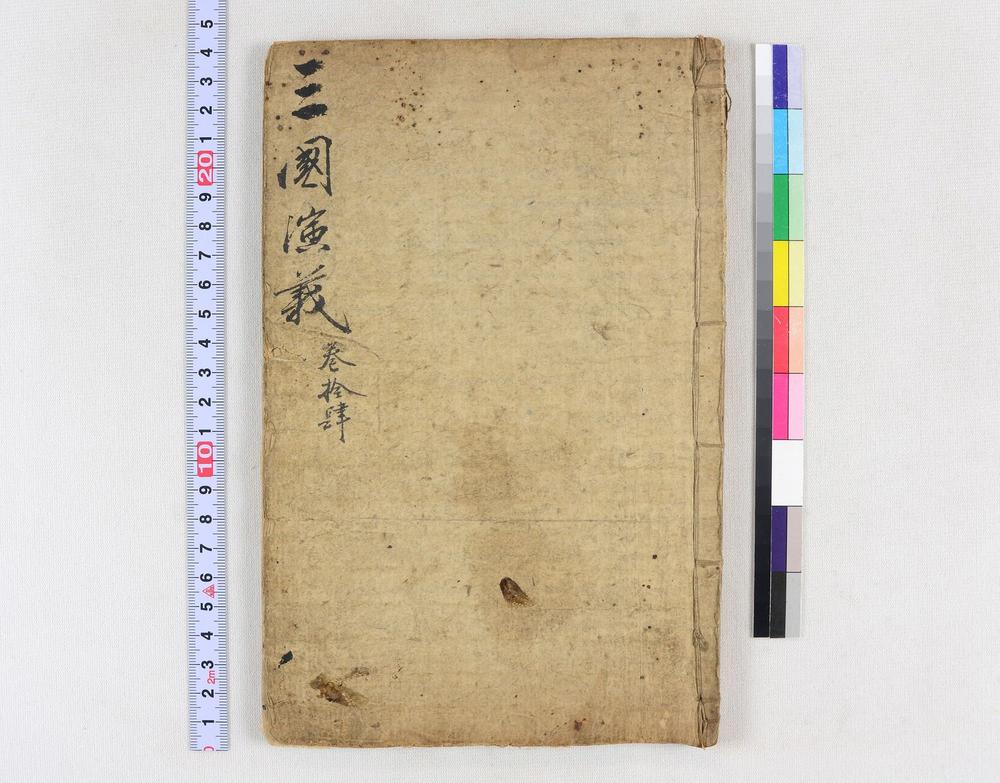 三國演義
卷拾肆
5
4
3
2
1
20
9
8
7
6
5
4
3
2
1
10
9
8
7
6
5
4
3
2m
2
1
0